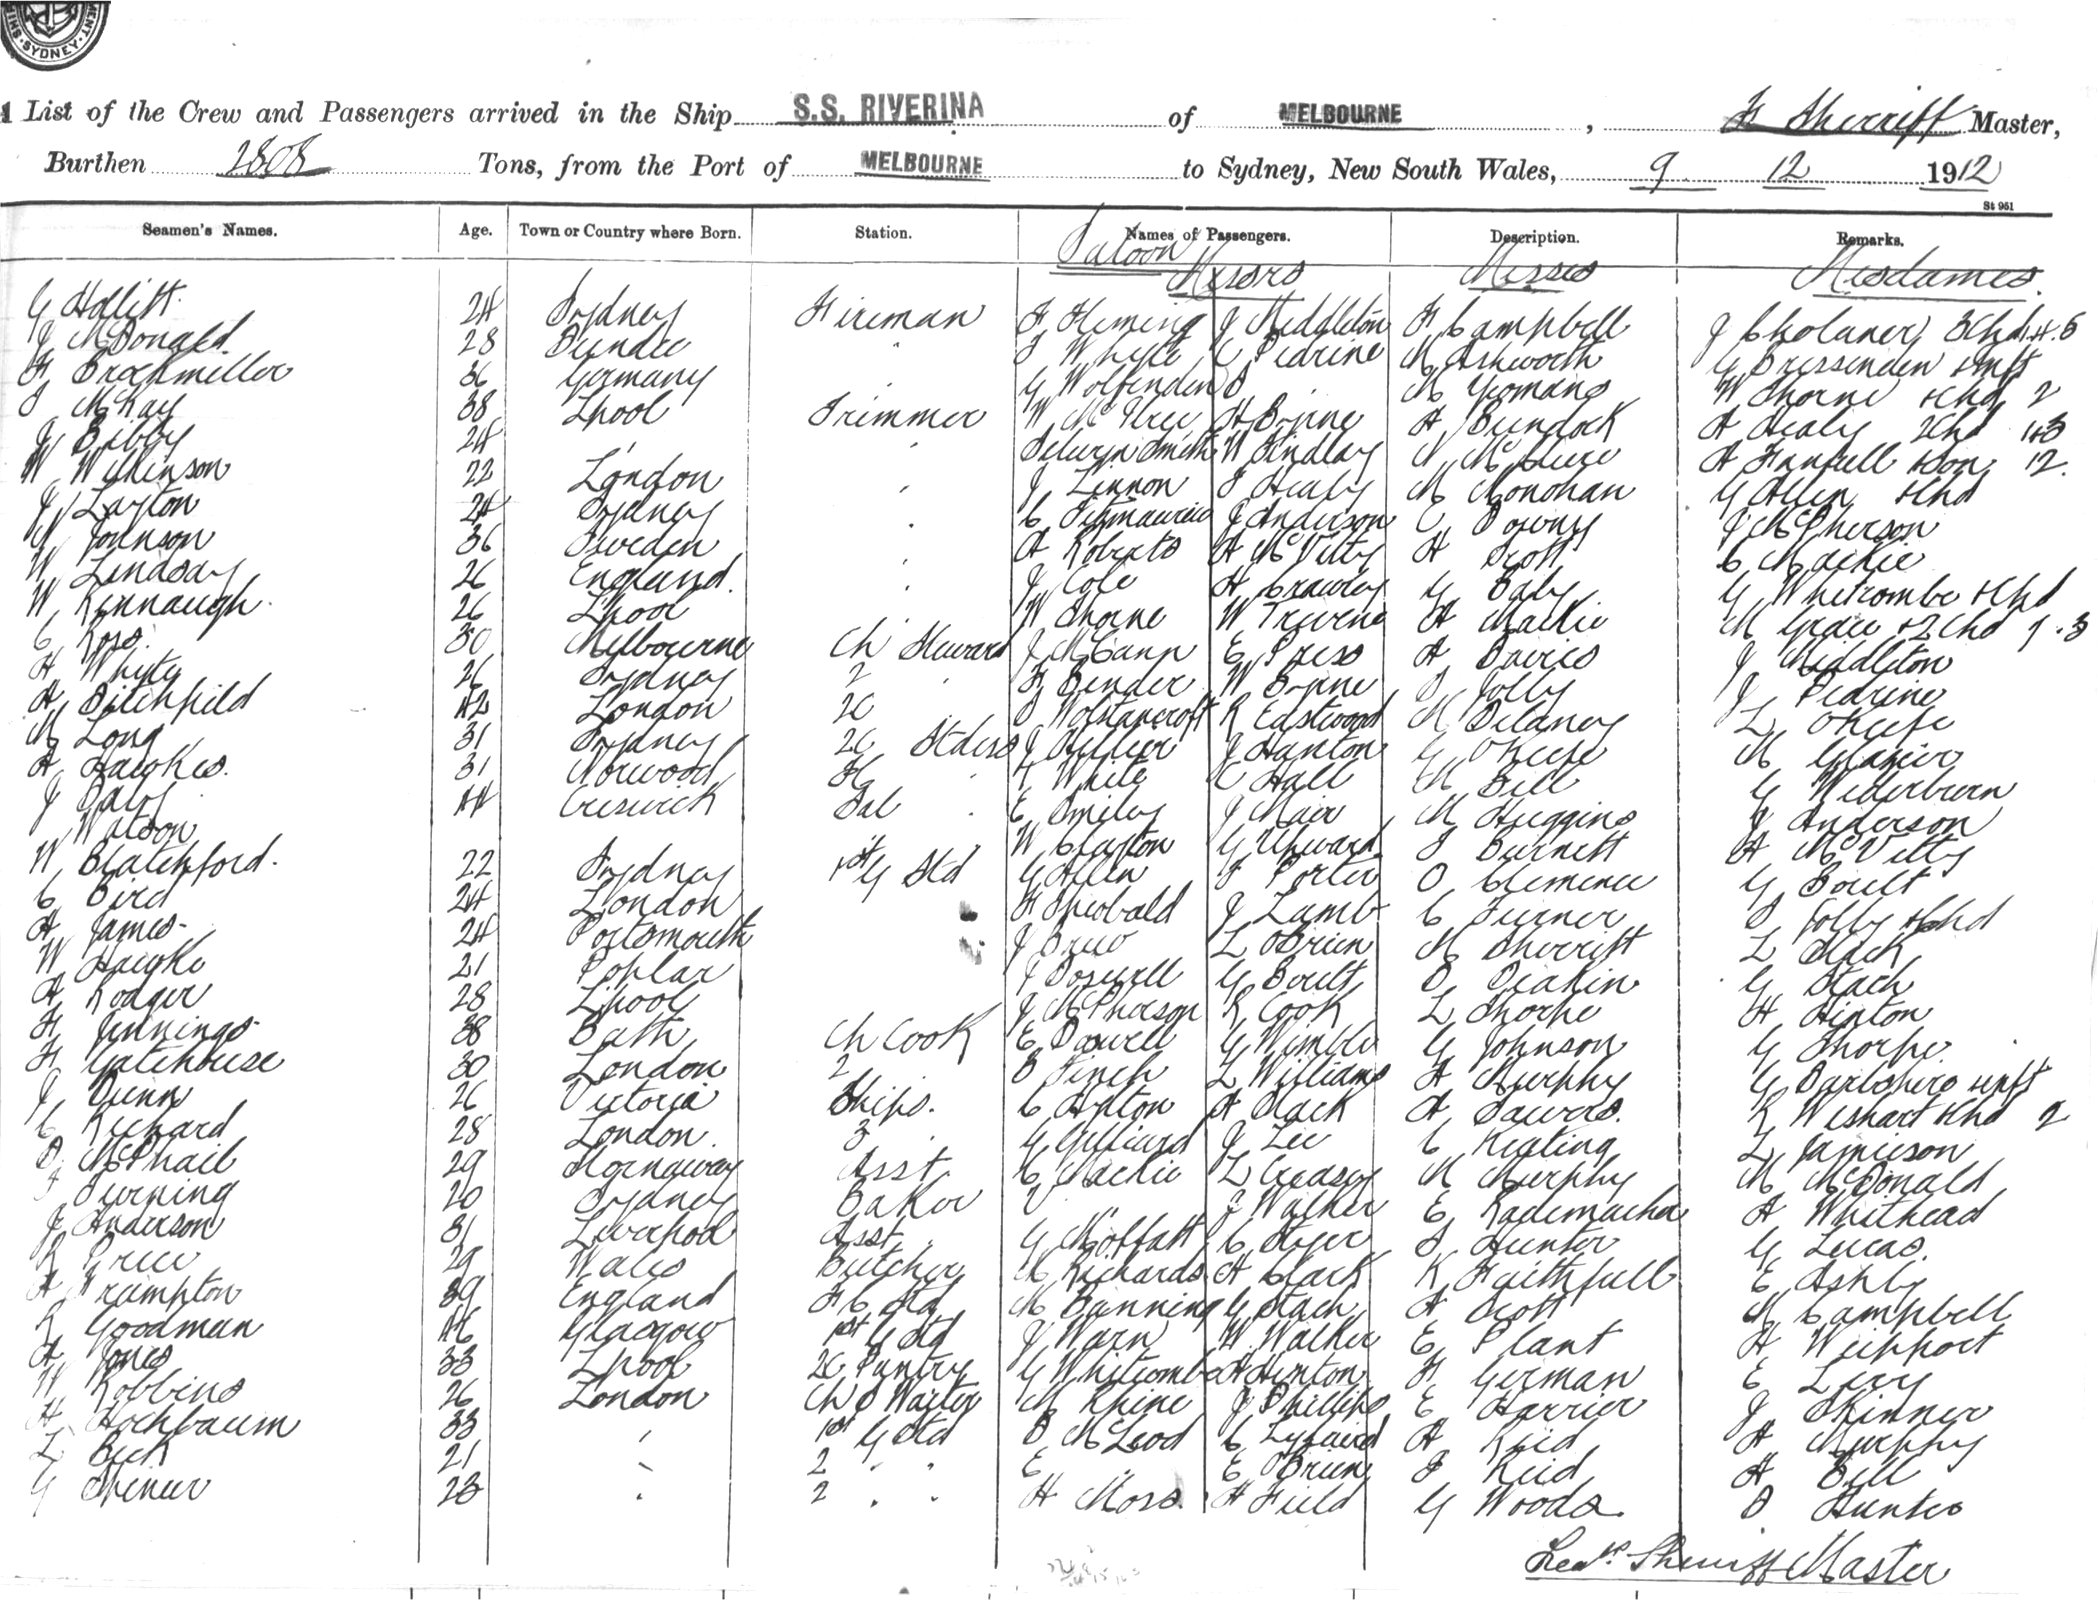 SYDNEY
List of the Crew and Passengers arrived in the Ship S.S. RIVERINA of MELBOURNE, Sherriff Master,
Burthen 2808 Tons, from the Port of MELBOURNE to Sydney, New South Wales, 9 12 1912
St 951
Seamen's Names. Age. Town or Country where Born. Station. Names of Passengers. Description. Remarks.
Saloon Messrs Misses Mesdames.
G Hollitt 24 Sydney Fireman F Fleming J Middleton F Campbell
J McDonald 28 Dundee " T Whyte C Pedrine M Ashworth
F Brockmiller 36 Germany G Wolfenden M Yeomans W Thorne + Chd 2
McKay 38 Lpool Trimmer H Byrne A Bundock A Healy 2Chd
J Bibby 24 " Selwyn Smith W Findlay McClure
W Wilkinson 22 London J Lennon F Healy M Monohan G Allen + Chd
J Layton 24 Sydney C Fitzmaurice J Anderson J McPherson
Johnson 36 Sweden A Roberts A McVitty A Scott C Mackie
W Lindsay 26 England. J Cole A Crawley G Daly G Whitcombe + Chd
W Kinnaugh 26 Lpool W Thorne A Mackie M Grace + 2 Chd
C Ross 30 Melbourne Ch Steward J McCann A Davies J Middleton
A Whyte 26 Sydney 2 F Bender W Byrne Jolly J Pedrine
A Ditchfield 42 London 2C Wolstancroft R Eastwood M Delaney L OKeefe
M Long 31 Sydney 2C Stdess J Hillier J Hanton G OKeefe M Glazier
A Hawkes. 31 Norwood White C Hall M Bell G Wederburn
J Daly 44 Creswick Sal E Smiley J Mair M Huggins J Anderson
Watson W Clayton G Upward Burnett A McVitty
W Blatchford. 22 Sydney 1st G Std G Allen F Porter Clemence G Boult
C Bird 24 London F Theobald J Lamb C Turner Jolly + Chd
A James 24 Portsmouth J Brew L OBrien M Sherriff L Black
W Hawke 21 Poplar J Boswell G Boult Deakin G Stach
A Rodger 28 Lpool J McPherson R Cook L Thorpe H Hinton
F Jennings 38 Bath Ch Cook E G Wimble G Johnson G Thorpe
F Gatehouse 30 London 2 Finch L Williams A Murphy
J Dunn 26 Victoria Ships. A Black R Wishart + Chd 2
C Richard 28 London. 3 G Gilliard J Lee C Keating L Jamieson
D McPhail 29 Stornaway Asst C Mackie L Creasey M Murphy M McDonald
20 Sydney Baker J Walker E Rademacher A Whitehead
J Anderson 31 Liverpool Asst G Moffatt Hunter G Lucas.
R Price 29 Wales Butcher Richards A Clark K Faithfull E Ashby
A Frampton 39 England F C Std M Banning G Stach A Scott M Campbell
R Goodman 46 Glasgow 1st G Std J Warn W Walker E Plant
A Jones 33 Lpool 2C Pantry G Whitcombe A Hinton F German E Levy
W Robbins 26 London Ch S Waiter M Rhine J Phillips E Harrier J Skinner
H Hochbaum 33 " 1st G Std McLeod A Reid A Murphy
L Beck 21 " 2 " " E " E OBrien Reid A Bell
G Spencer 23 " 2 " " H Moss H Field G Woods Hunter
Sherriff Master